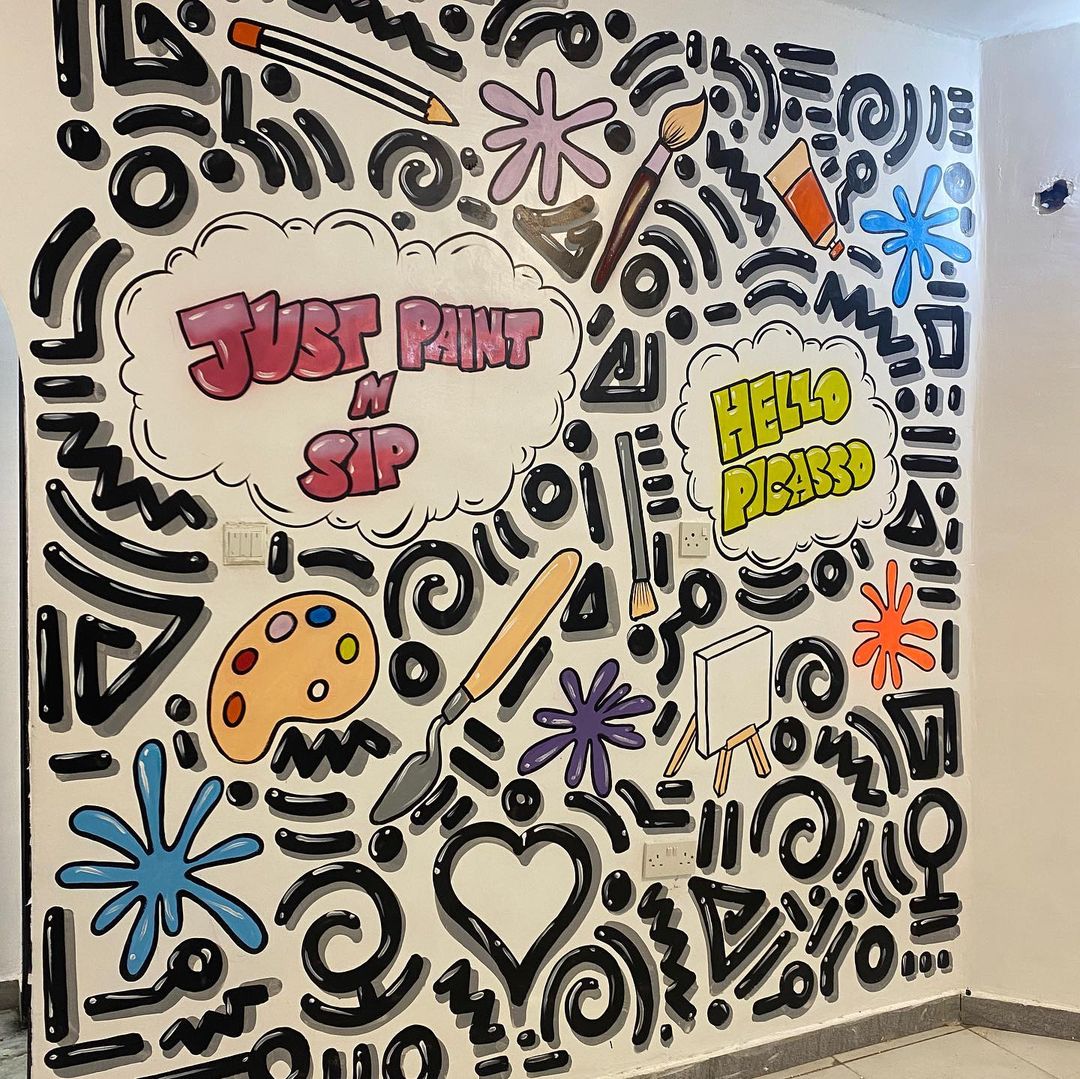 JUST PAINT
N
SIP
HELLO
PICASSO